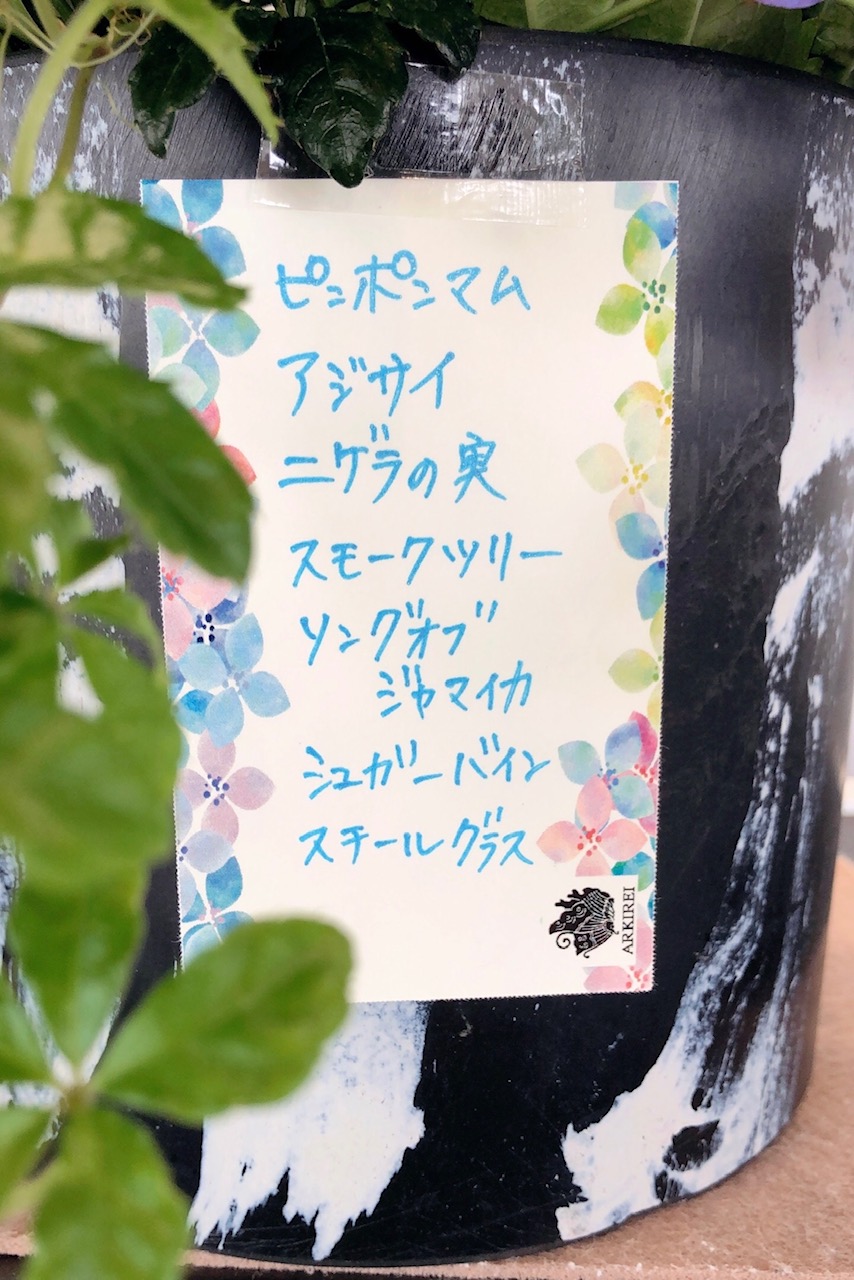 ピンポンマム
アジサイ
ニゲラの実
スモークツリー
ソングオブ
ジャマイカ
シュガーバイン
スチールグラス
ARKIREI